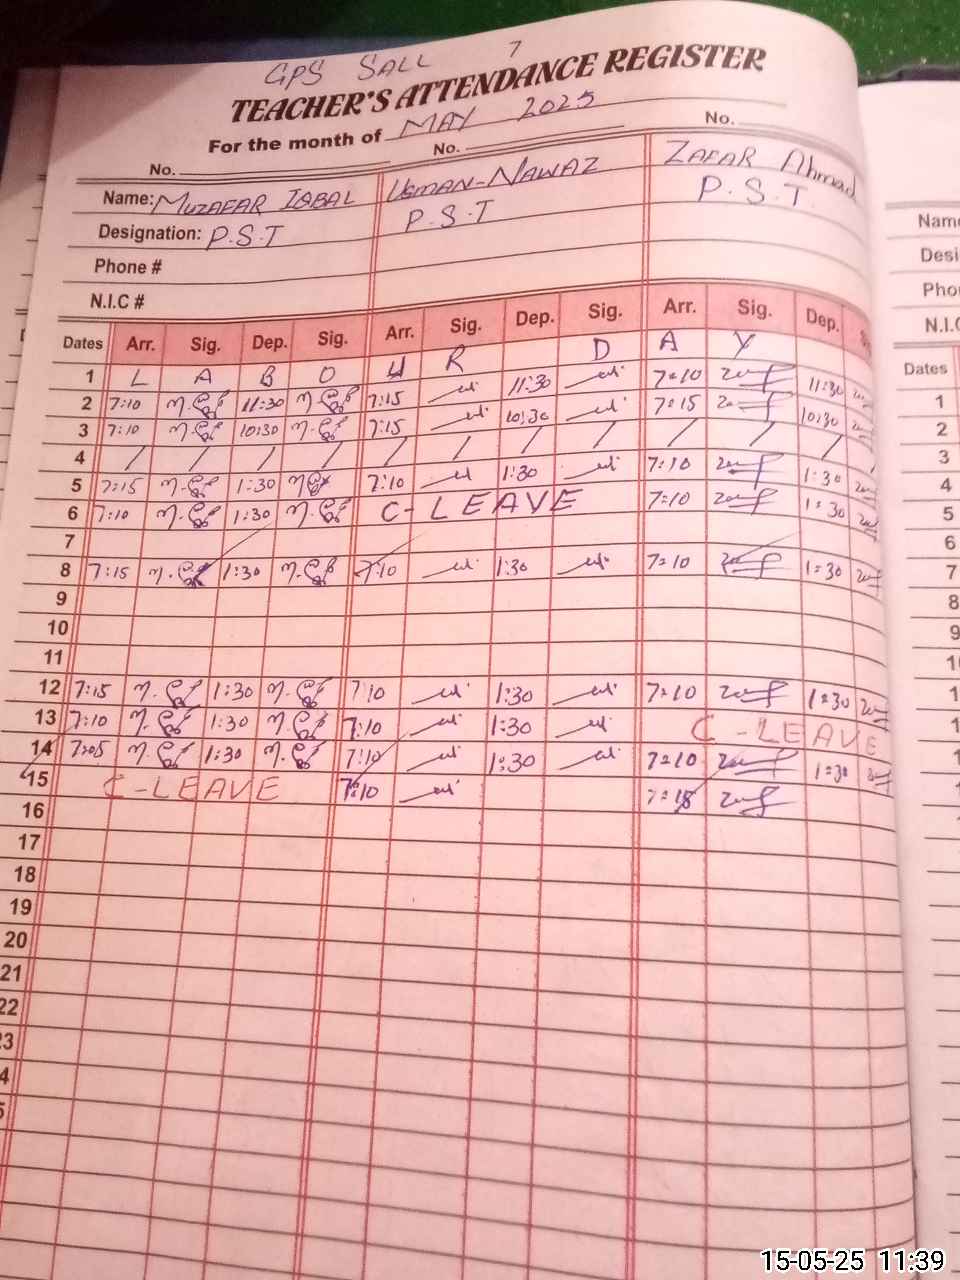 GPS SALL 7
TEACHER'S ATTENDANCE REGISTER
For the month of MAY 2025
No. No. No.
Name: MUZAFAR IQBAL USMAN-NAWAZ ZAFAR Ahmad
Designation: P.S.T P.S.T P.S.T
Phone #
N.I.C #
Dates Arr. Sig. Dep. Sig. Arr. Sig. Dep. Sig. Arr. Sig. Dep.
1 L A B O U R D A Y
2 7:10 11:30 7:15 11:30 7:10 11:30
3 7:10 10:30 7:15 10:30 7:15 10:30
4 / / / / / / / / / / /
5 7:15 1:30 7:10 1:30 7:10 1:30
6 7:10 1:30 C-LEAVE 7:10 1:30
7
8 7:15 1:30 7:10 1:30 7:10 1:30
9
10
11
12 7:15 1:30 7:10 1:30 7:10 1:30
13 7:10 1:30 7:10 1:30 C-LEAVE
14 7:05 1:30 7:10 1:30 7:10 1:30
15 C-LEAVE 7:10 7:15
16
17
18
19
20
21
22
23
Name
Desi
Pho
N.I.C
Dates
1
2
3
4
5
6
7
8
9
15-05-25 11:39